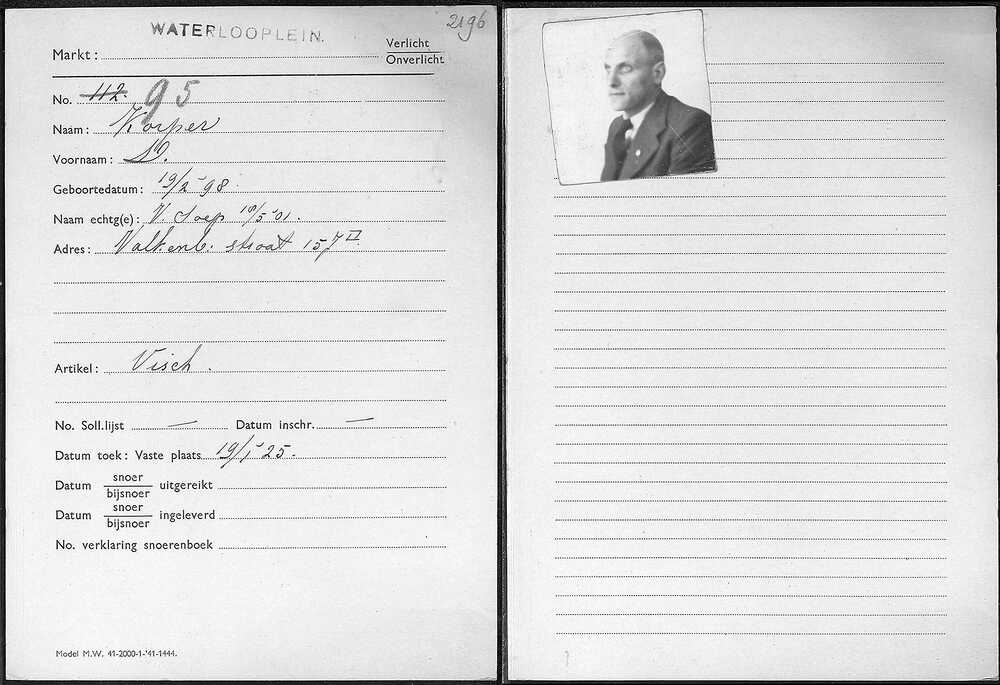 2196
WATERLOOPLEIN.
Markt: Verlicht
Onverlicht
No. 112. 95
Naam: Korper
Voornaam:
Geboortedatum: 19/2 '98.
Naam echtg(e): V. Soep 10/5 '01.
Adres: Valkenb. straat 157 II
Artikel: Visch.
No. Soll.lijst — Datum inschr. —
Datum toek: Vaste plaats 19/1 '25.
Datum snoer
bijsnoer uitgereikt
Datum snoer
bijsnoer ingeleverd
No. verklaring snoerenboek
Model M.W. 41-2000-1-'41-1444.